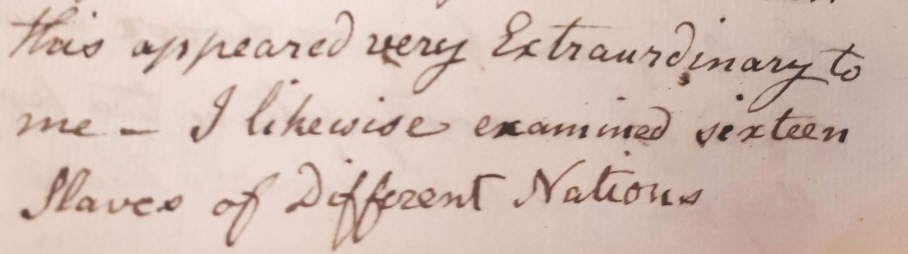 this appeared very Extraurdinary to
me – I likewise examined sixteen
Slaves of Different Nations